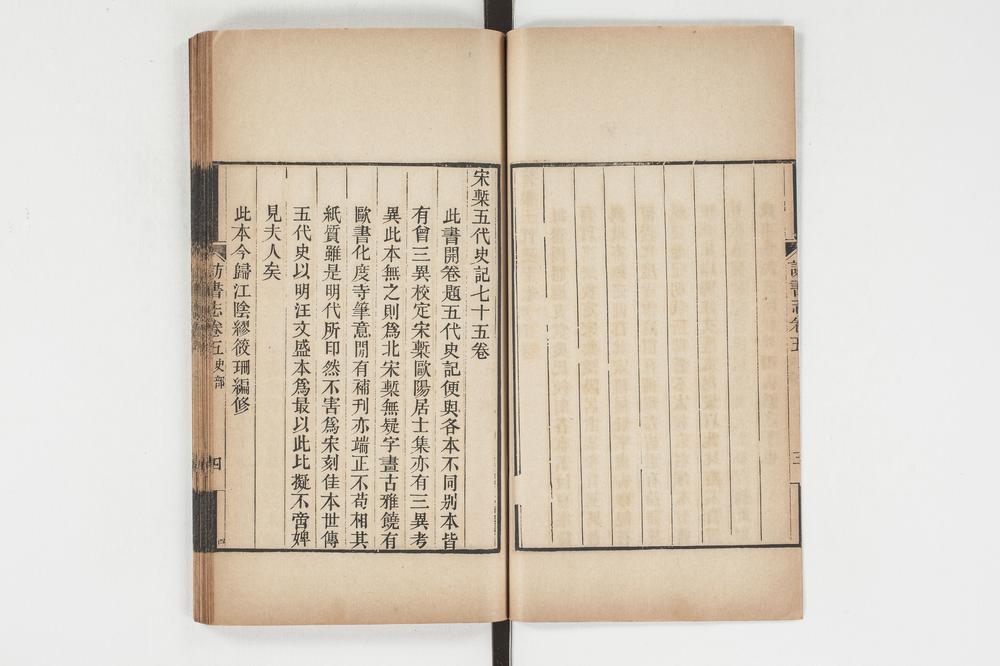 訪書志卷五
三
宋槧五代史記七十五卷
此書開卷題五代史記便與各本不同別本皆
有曾三異校定宋槧歐陽居士集亦有三異考
異此本無之則爲北宋槧無疑字畫古雅饒有
歐書化度寺筆意閒有補刊亦端正不苟相其
紙質雖是明代所印然不害爲宋刻佳本世傳
五代史以明汪文盛本爲最以此比擬不啻婢
見夫人矣
此本今歸江陰繆筱珊編修
訪書志卷五史部
四